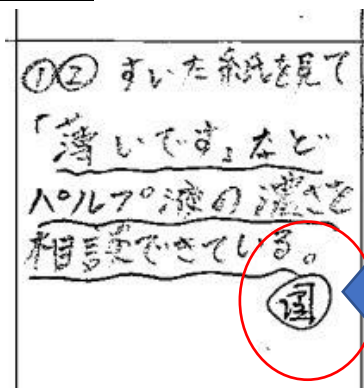 ①② すいた紙を見て
「薄いです」など
パルプ液の濃さを
相談できている。
国